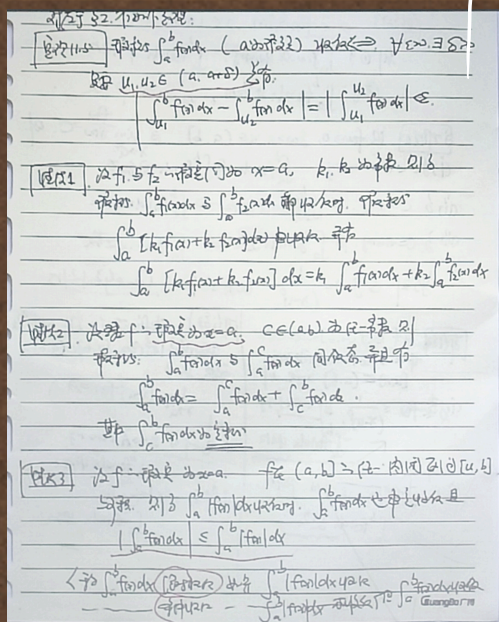 瑕积分 ∫_a^b f(x)dx (a为瑕点) 收敛 ⇔ ∀ε>0 ∃δ>0
u₁,u₂∈(a, a+δ)
|∫_{u₁}^b f(x)dx − ∫_{u₂}^b f(x)dx| = |∫_{u₁}^{u₂} f(x)dx| < ε.
性质1 设f₁与f₂ 瑕点同为x=a, k₁ k₂ 为常数 则当
瑕积分 ∫_a^b f₁(x)dx 与 ∫_a^b f₂(x)dx 都收敛时, 瑕积分
∫_a^b [k₁f₁(x)+k₂f₂(x)]dx 也收敛 且
∫_a^b [k₁f₁(x)+k₂f₂(x)] dx = k₁ ∫_a^b f₁(x)dx + k₂ ∫_a^b f₂(x)dx
性质2 设 f 瑕点为x=a, c∈(a,b) 为任一常数 则
瑕积分 ∫_a^b f(x)dx 与 ∫_a^c f(x)dx 同敛态 并且有
∫_a^b f(x)dx = ∫_a^c f(x)dx + ∫_c^b f(x)dx.
其中 ∫_c^b f(x)dx 为定积分
性质3 设 f 瑕点为x=a. f在 (a,b] 任一内闭区间[u,b]
可积. 则当 ∫_a^b |f(x)|dx收敛时. ∫_a^b f(x)dx也必收敛且
|∫_a^b f(x)dx| ≤ ∫_a^b |f(x)|dx
∫_a^b f(x)dx ∫_a^b |f(x)|dx收敛
GuangBoF70